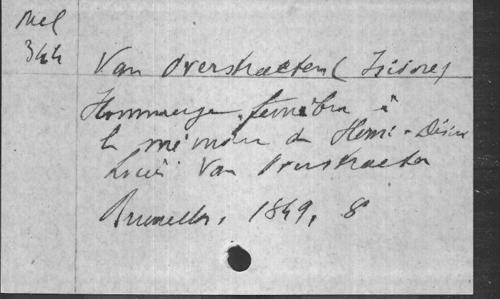 Mel
344
Van Overstraeten (Isidore)
Hommage funèbre à
la mémoire de Henri-Désiré
Louis Van Overstraeten
Bruxelles, 1849, 8